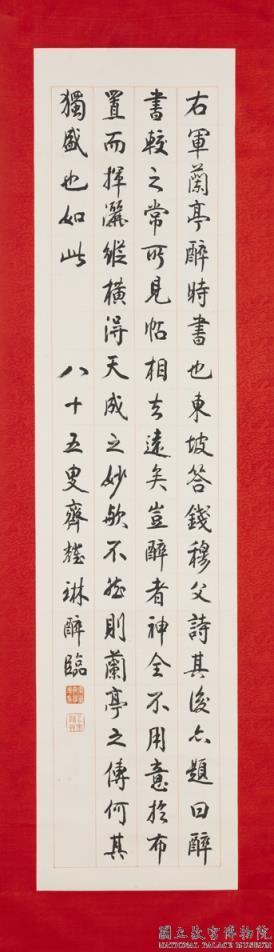 右軍蘭亭醉時書也東坡答錢穆父詩其後亦題曰醉
書較之常所見帖相去遠矣豈醉者神全不用意於布
置而揮灑縱橫得天成之妙歟不然則蘭亭之傳何其
獨盛也如此 八十五叟齊耀琳醉臨
國立故宮博物院
NATIONAL PALACE MUSEUM